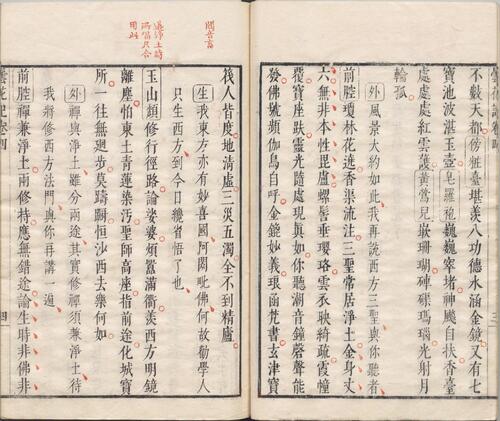 不穀天都傍粧臺堪羨八功德水涵金鏡又有七
寶池波湛玉壺皂羅袍巍巍窣堵神飇自扶香臺
處處處紅雲蓋黃鶯兒嵌珊瑚硨磲瑪瑙光射月
輪孤
外風景大約如此我再說西方三聖與你聽者
前腔瓊林花遶香渠流注三聖常居淨土金身丈
六無非本性毘盧螺髻垂瓔珞雲衣映綺疏霞幢
覆寶座趺靈光隨處現真如你聽潮音鐘磬聲能
發佛號頻伽鳥自呼金鏡妙義琅函梵書玄津寶
筏人皆度地清虛三災五濁全不到精廬
生我東方亦有妙喜國阿閦毗佛何故勸學人
只生西方到今日纔省悟了也
玉山頹修行徑路論娑婆煩囂滿衢羨西方明鏡
離塵怕東土青蓮染汚聖師高座指前途化城寶
所一往無廻步莫躊蹰恒沙西去樂何如
外禪與淨土雖分兩途其實修禪須兼淨土待
我將修西方法門與你再講一遍
前腔禪兼淨土兩修持應無錯途論生時非佛非
閦音畜
四